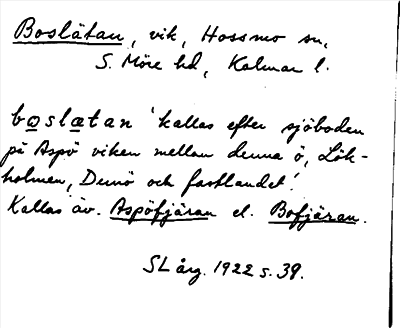 Boslätan, vik, Hossmo sn,
S. Möre hd, Kalmar l.
boslætan 'kallas efter sjöboden
på Aspö viken mellan denna ö, Lök-
holmen, Dunö och fastlandet.'
Kallas äv. Aspöfjäran el. Bofjäran.
SL årg. 1922 s. 39.